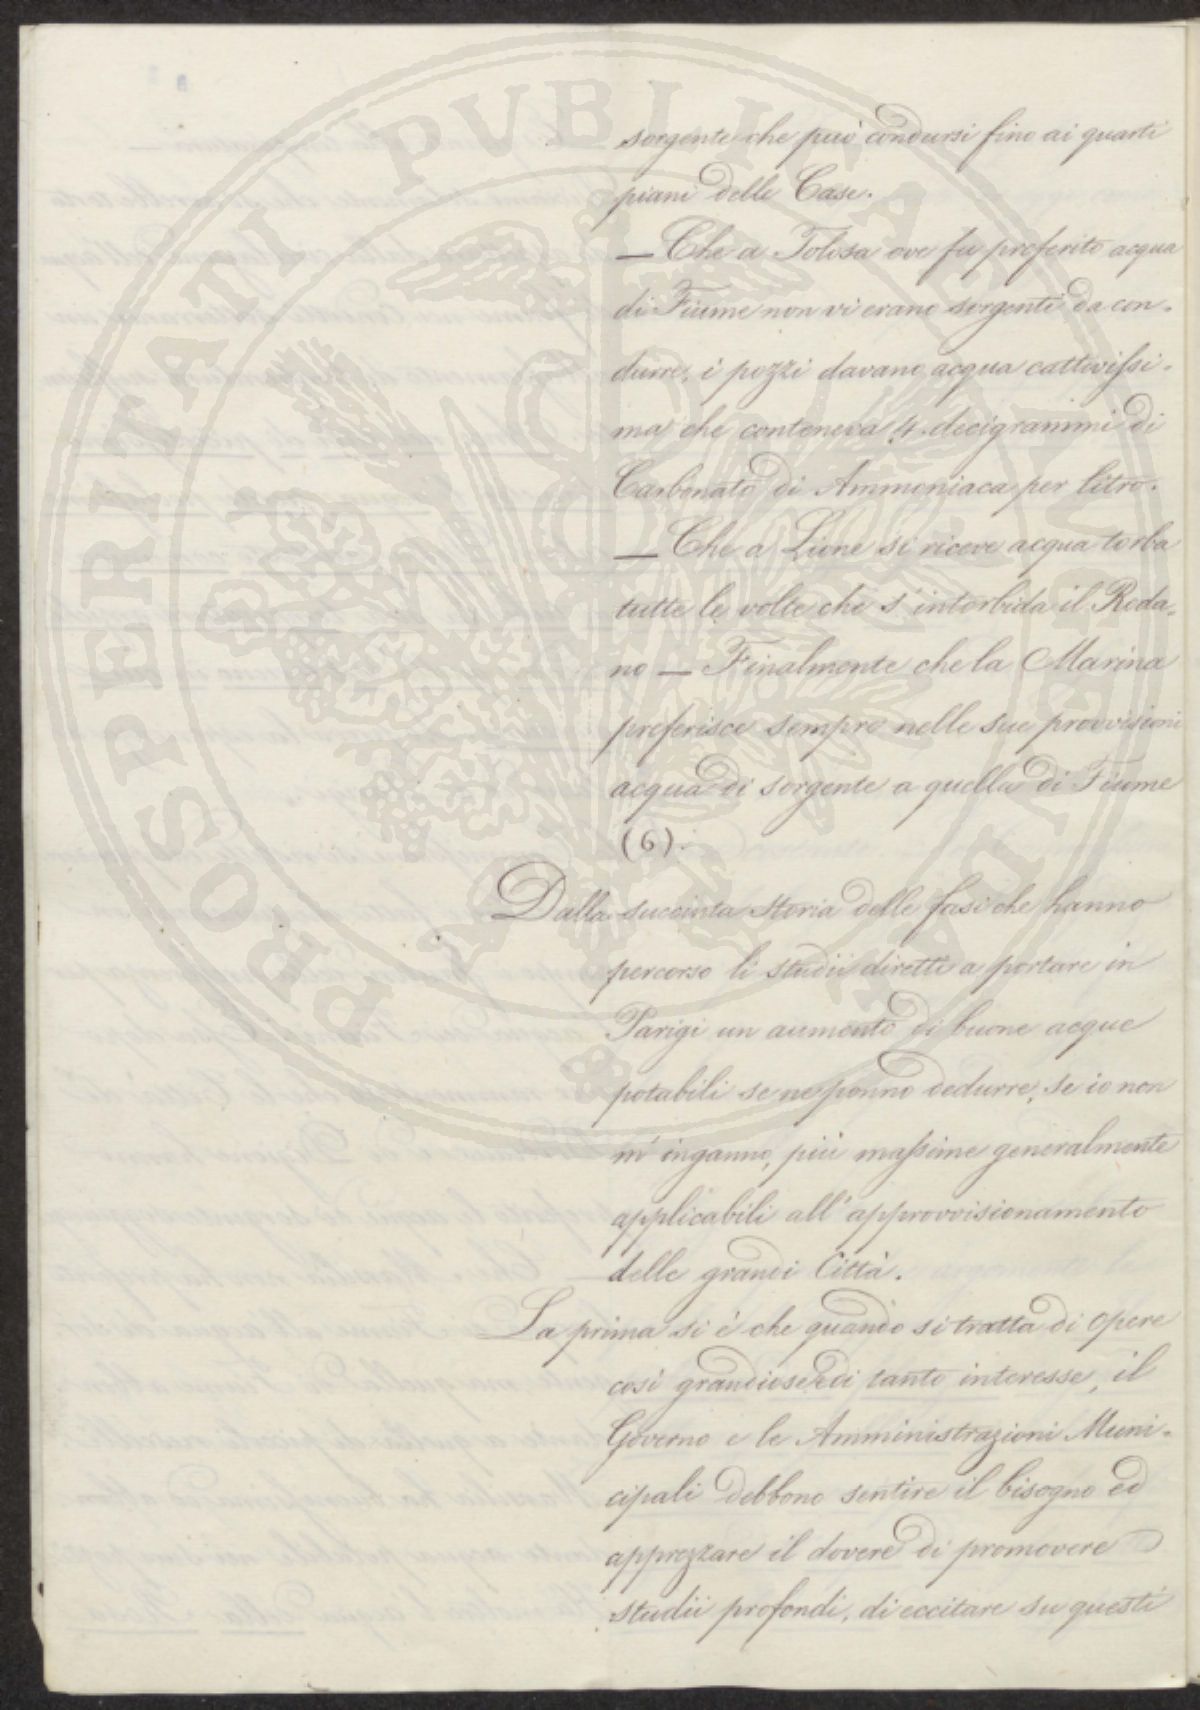 sorgente che può condursi fino ai quarti
piani delle Case.
— Che a Tolosa ove fu preferito acqua
di Fiume non vi erano sorgenti da con-
durre, i pozzi davano acqua cattivissi-
ma che conteneva 4 decigrammi di
Carbonato di Ammoniaca per litro.
— Che a Lione si riceve acqua torba
tutte le volte che s'intorbida il Roda-
no — Finalmente che la Marina
preferisce sempre nelle sue provvisioni
acqua di sorgente a quella di Fiume
(6).
Dalla succinta storia delle fasi che hanno
percorso li studii diretti a portare in
Parigi un aumento di buone acque
potabili se ne ponno dedurre, se io non
m'inganno, più massime generalmente
applicabili all'approvvisionamento
delle grandi Città.
La prima si è che quando si tratta di opere
così grandiose e di tanto interesse, il
Governo e le Amministrazioni Muni-
cipali debbono sentire il bisogno ed
apprezzare il dovere di promovere
studii profondi, di eccitare su questi
PROSPERITATI PUBLICAE AUGENDAE